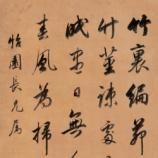 竹裏編茆
竹莖疎處
眠盡日無
春風為掃
怡園長兄屬